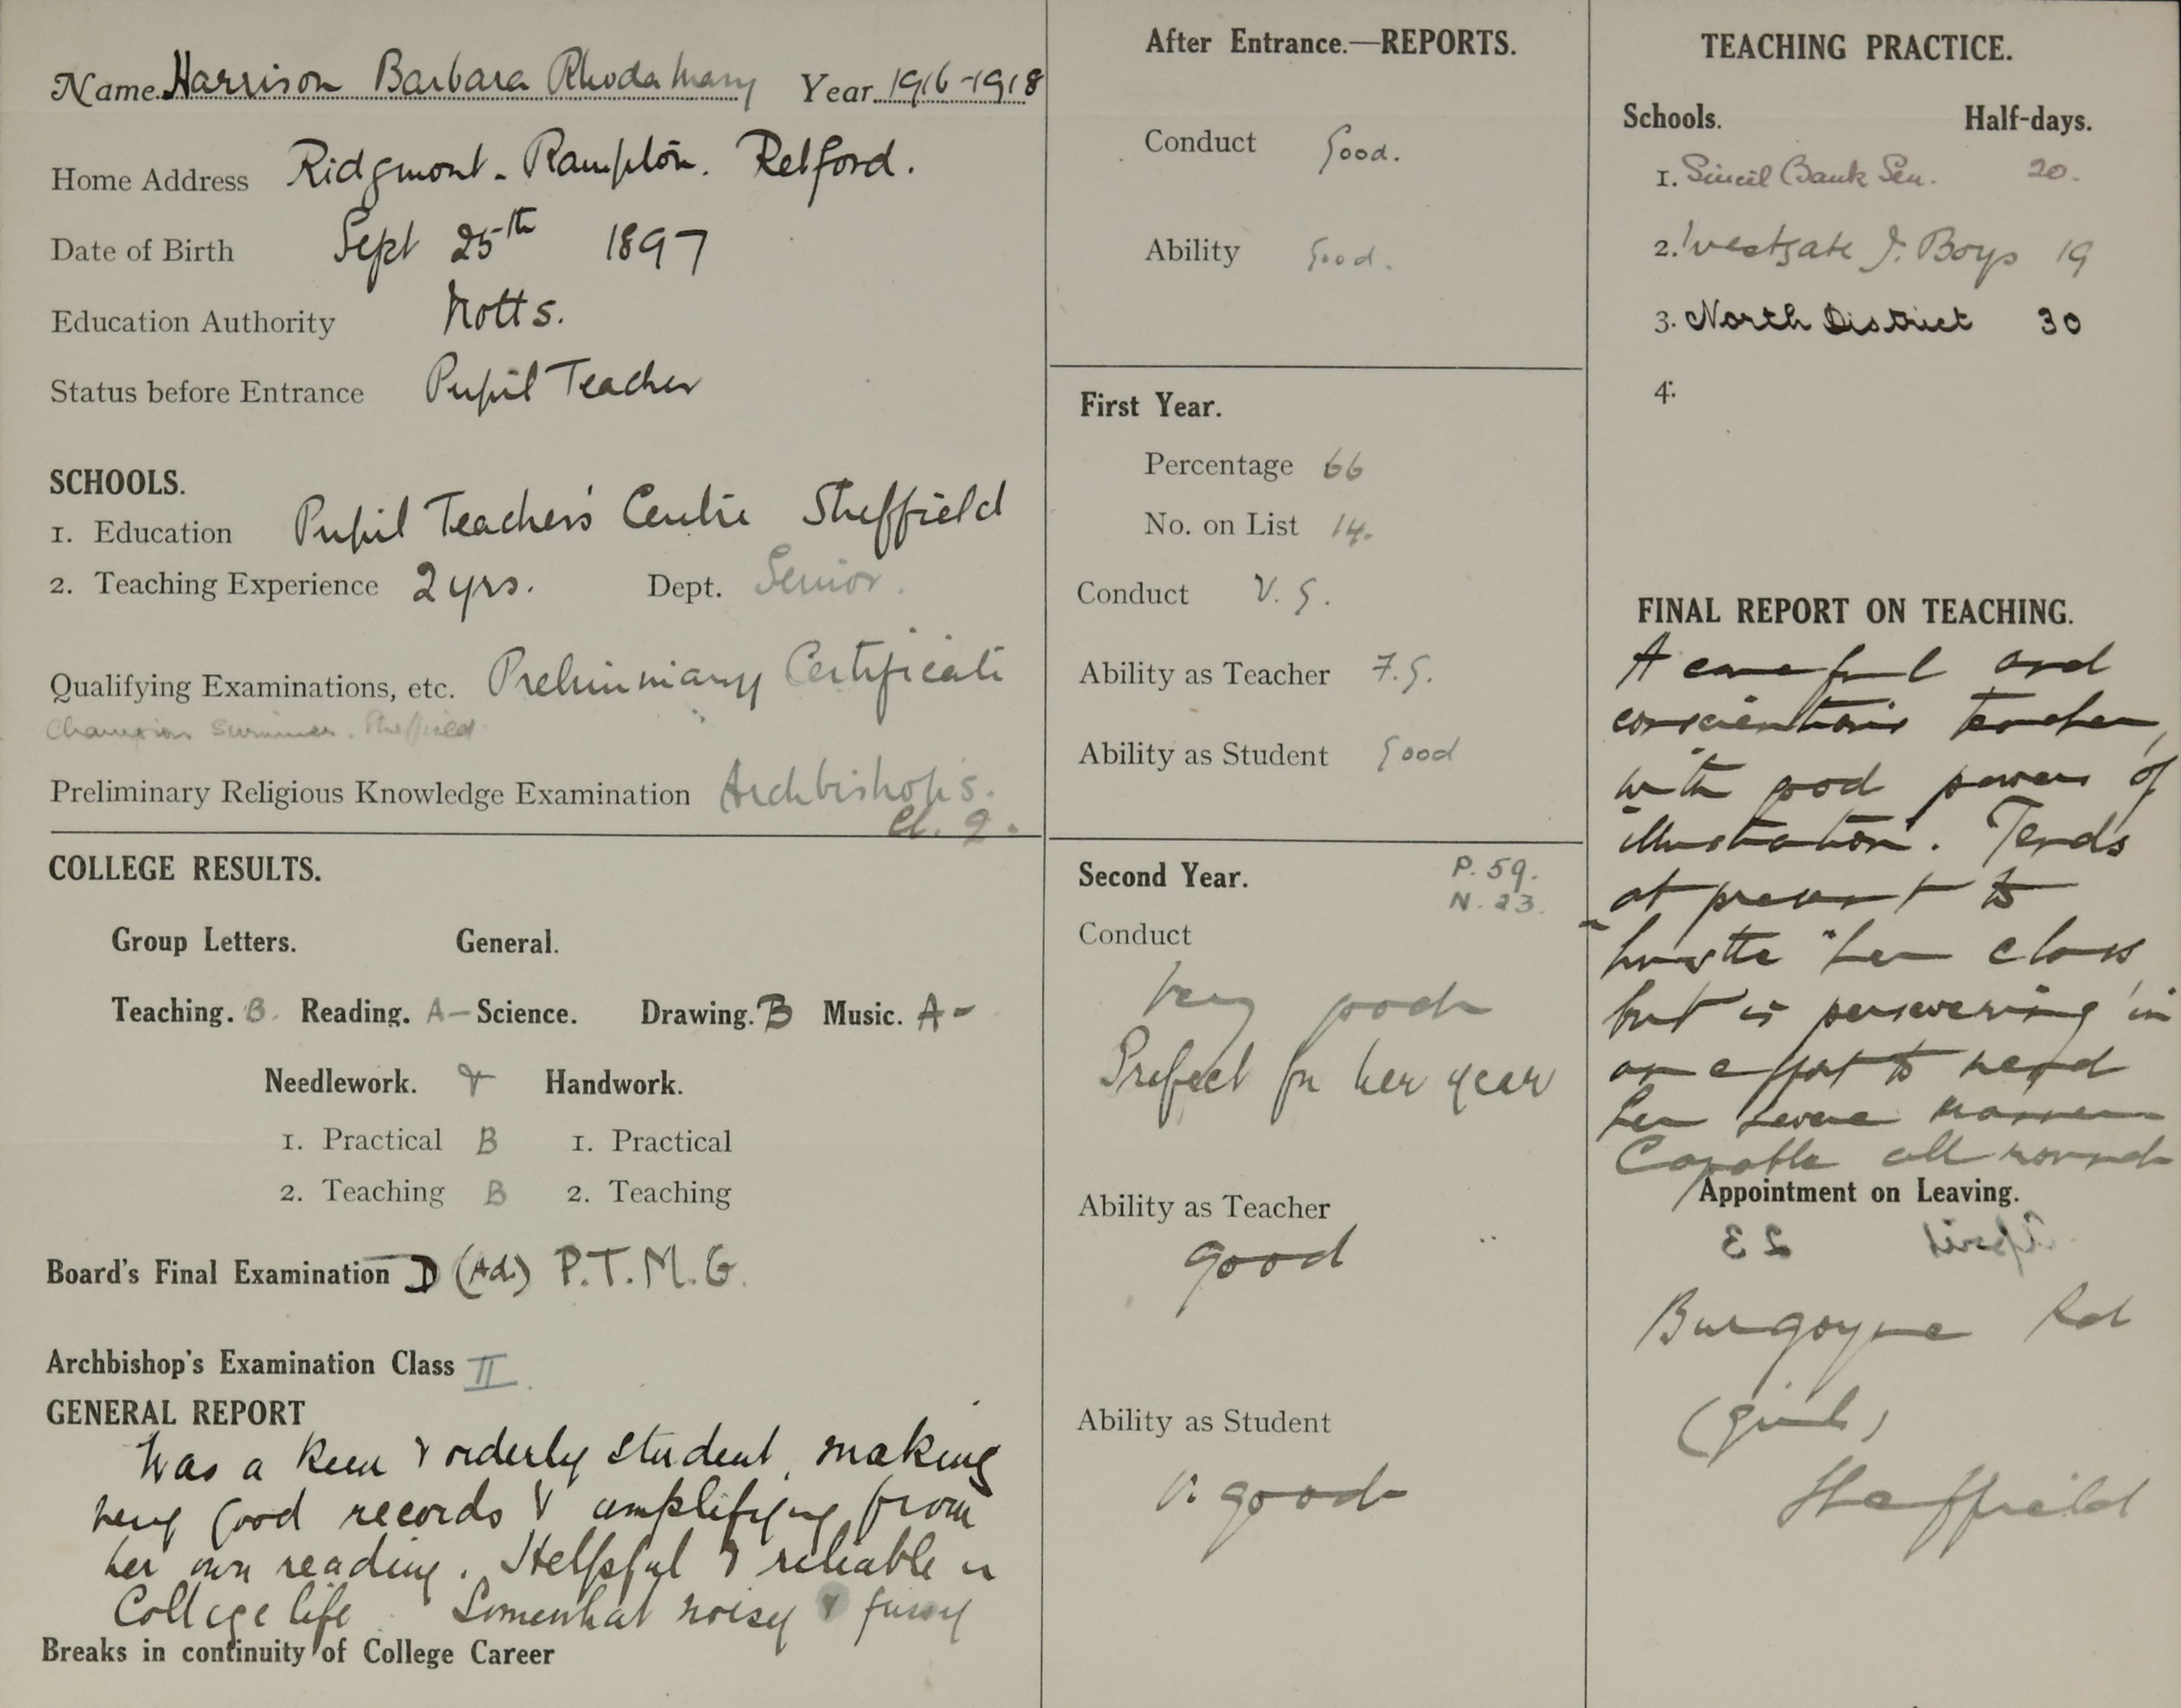 Name Harrison Barbara Rhoda Mary Year 1916-1918
Home Address Ridgmont - Rampton. Retford.
Date of Birth Sept 25th 1897
Education Authority Notts.
Status before Entrance Pupil Teacher
SCHOOLS.
1. Education Pupil Teachers' Centre Sheffield
2. Teaching Experience 2 yrs. Dept. Senior.
Qualifying Examinations, etc. Preliminary Certificate
Sheffield
Preliminary Religious Knowledge Examination Archbishop's.
Cl. 2.
COLLEGE RESULTS.
Group Letters. General.
Teaching. B. Reading. A- Science. Drawing. B Music. A-
Needlework. Handwork.
1. Practical B 1. Practical
2. Teaching B 2. Teaching
Board's Final Examination D (Ad.) P.T.M.G.
Archbishop's Examination Class II.
GENERAL REPORT
Was a keen & orderly student, making
very good records & amplifying from
her own reading. Helpful & reliable in
College life. Somewhat noisy & fussy
Breaks in continuity of College Career
After Entrance.—REPORTS.
Conduct Good.
Ability Good.
First Year.
Percentage 66
No. on List 14.
Conduct V. G.
Ability as Teacher F.G.
Ability as Student Good
Second Year. P. 59.
N. 23.
Conduct
Very good
Prefect for her year
Ability as Teacher
good
Ability as Student
v. good
TEACHING PRACTICE.
Schools. Half-days.
1. Sincil Bank Sen. 20.
2. Westgate J. Boys 19
3. North District 30
4.
FINAL REPORT ON TEACHING.
A careful and
conscientious teacher,
with good powers of
illustration. Tends
at present to
hustle her class
but is persevering in
an effort to mend
her severe manner
Capable all round
Appointment on Leaving.
Burgoyne Rd
(girls)
Sheffield